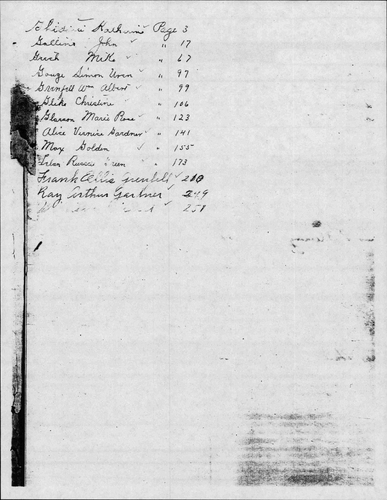 Katherine Page 3
Galtins John ✓ " 17
Grech Mike ✓ " 67
Gouge Simon Uren ✓ " 97
Grenfell Wm Albert ✓ " 99
Glike Christine " 106
Glasson Marie Rose ✓ " 123
Alice Vernice Gardner ✓ " 141
Max Golden ✓ " 155
Green ✓ " 173
Frank Ellis Grenfell ✓ 210
Ray Arthur Gardner ✓ 249
251